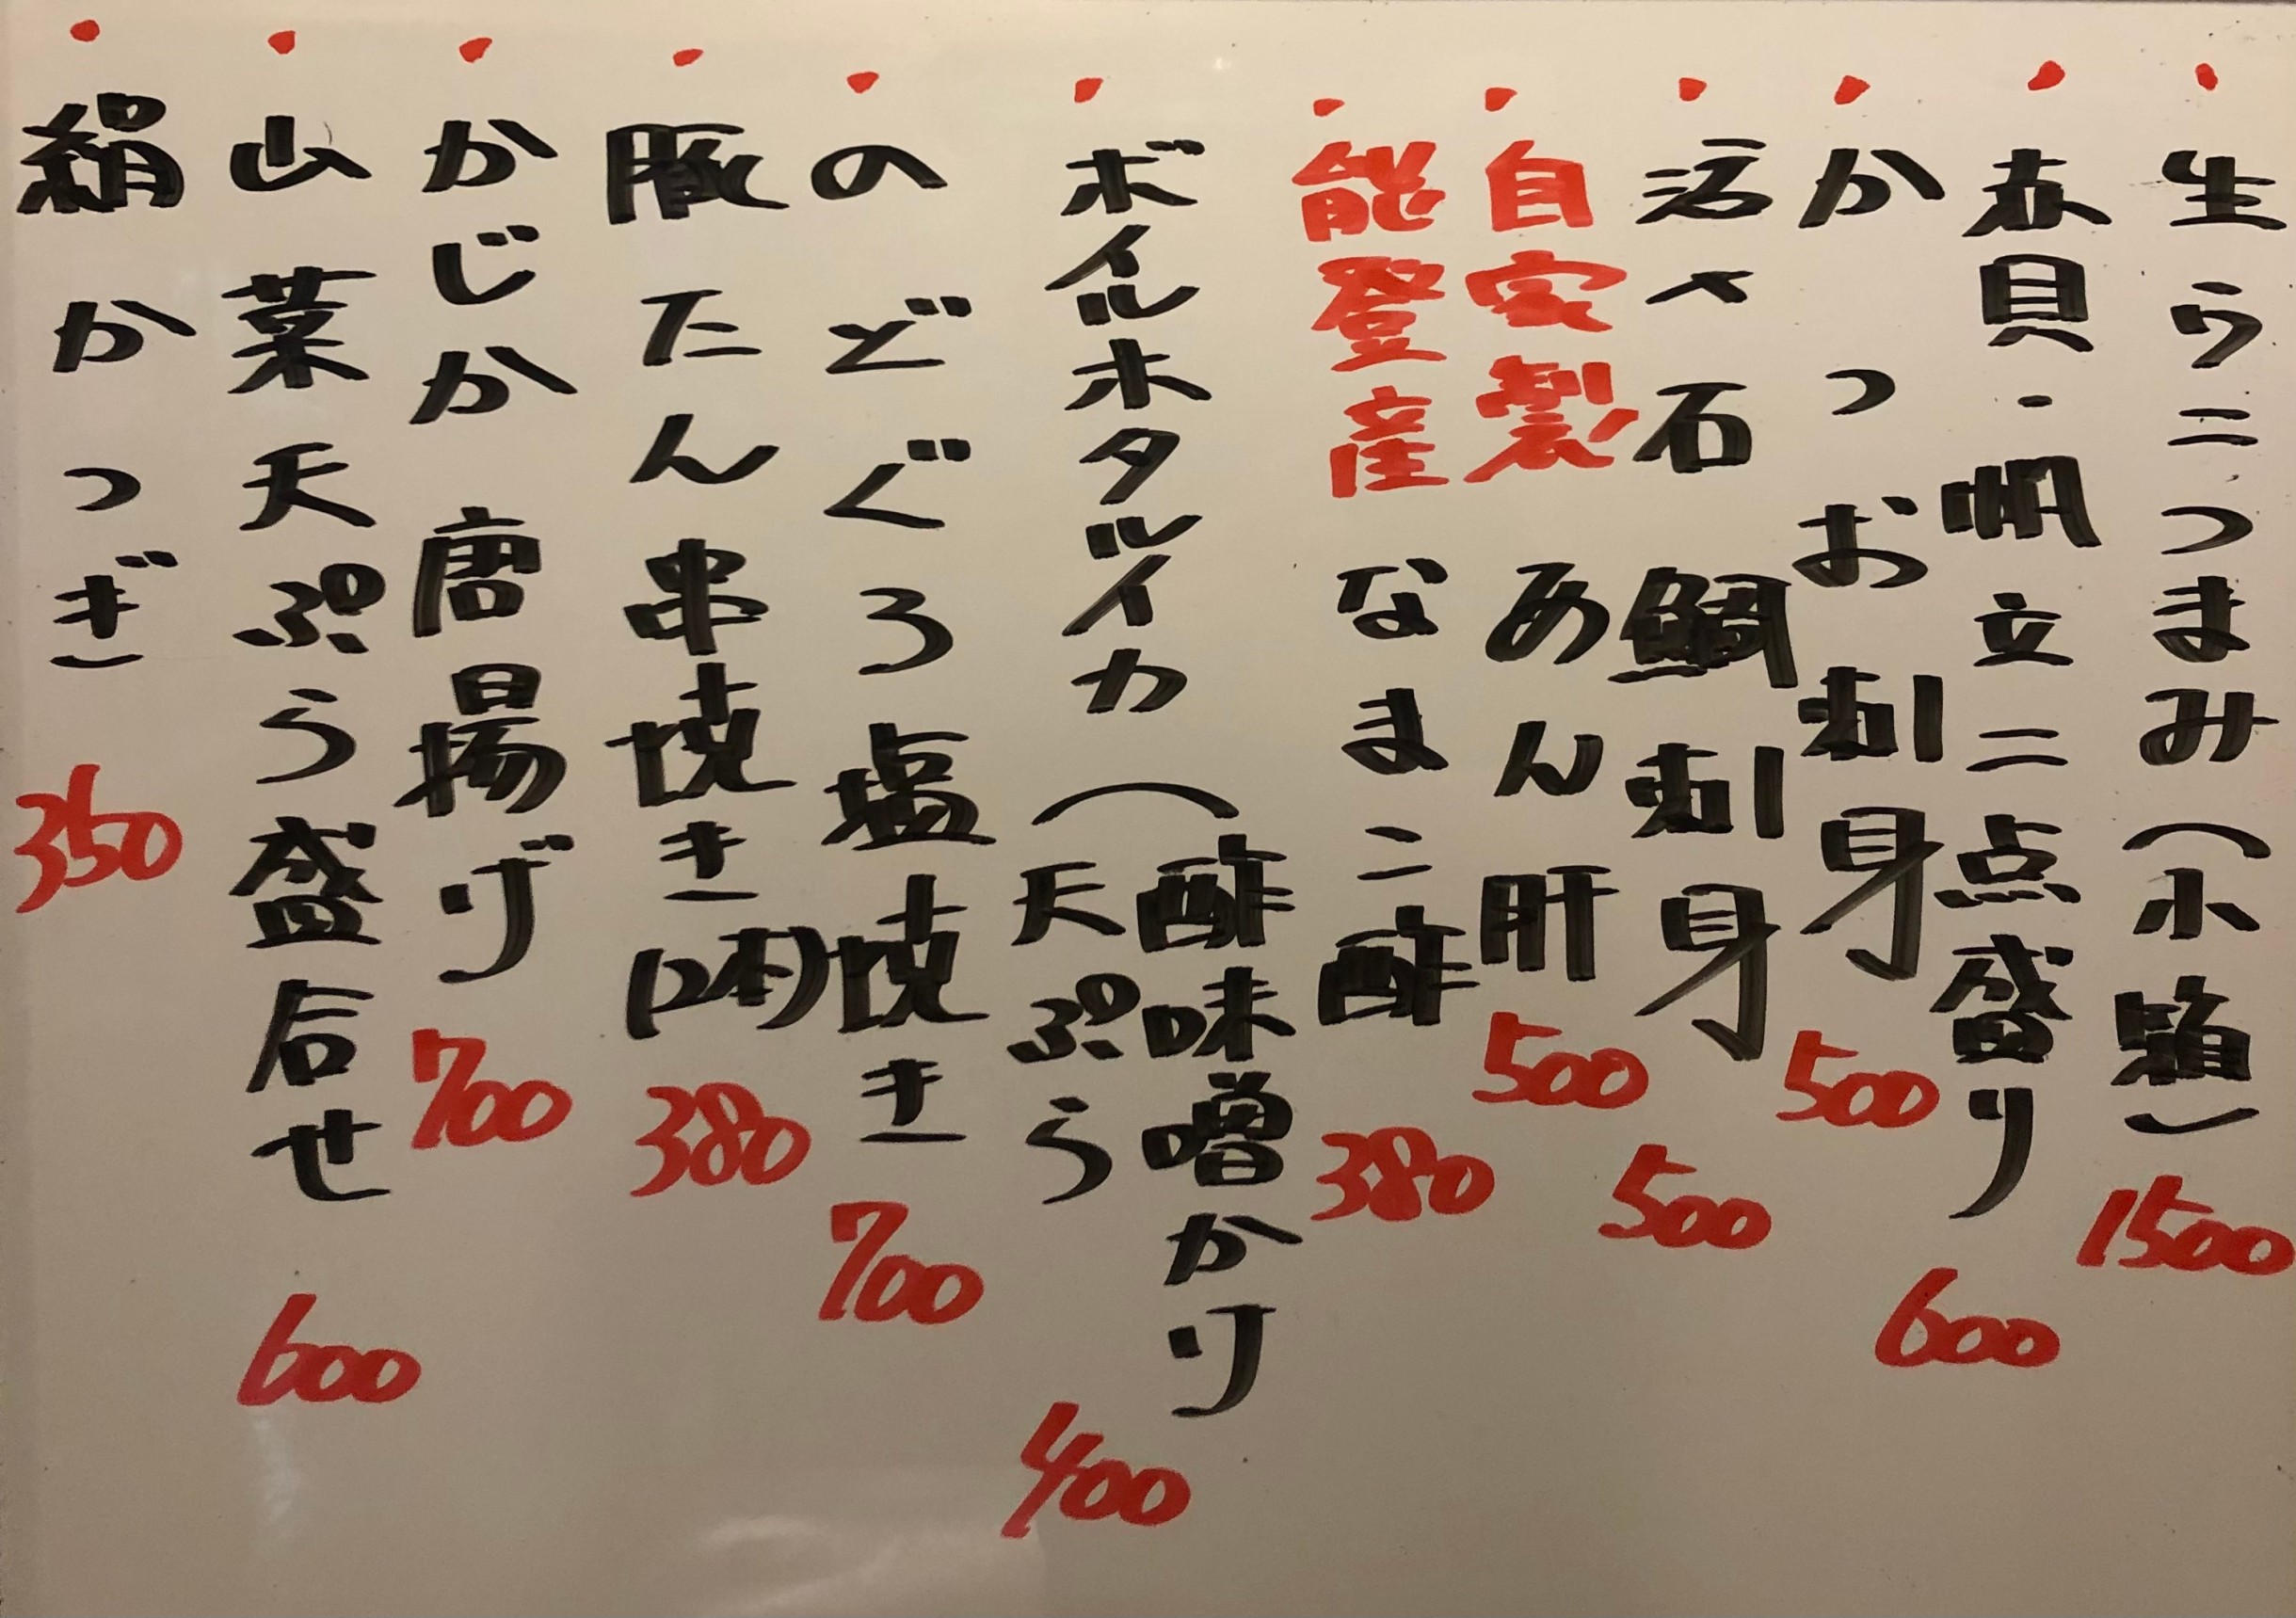 ・生うニつまみ(小箱) 1500
・赤貝・帆立二点盛り 600
・かつお刺身 500
・活〆石鯛刺身 500
・自家製 あん肝 500
・能登産 なまこ酢 380
・ボイルホタルイカ(酢味噌かけ
天ぷら 400
・のどぐろ塩焼き 700
・豚たん串焼き(2本) 380
・かじか 唐揚げ 700
・山菜天ぷら盛合せ 600
・絹かつぎ 350